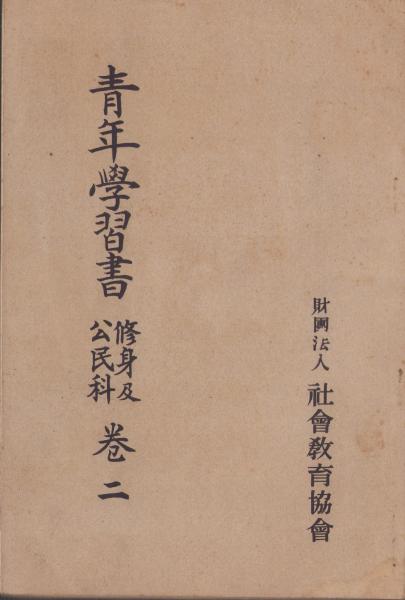 財團法人 社會教育協會
青年學習書 修身及公民科 卷二